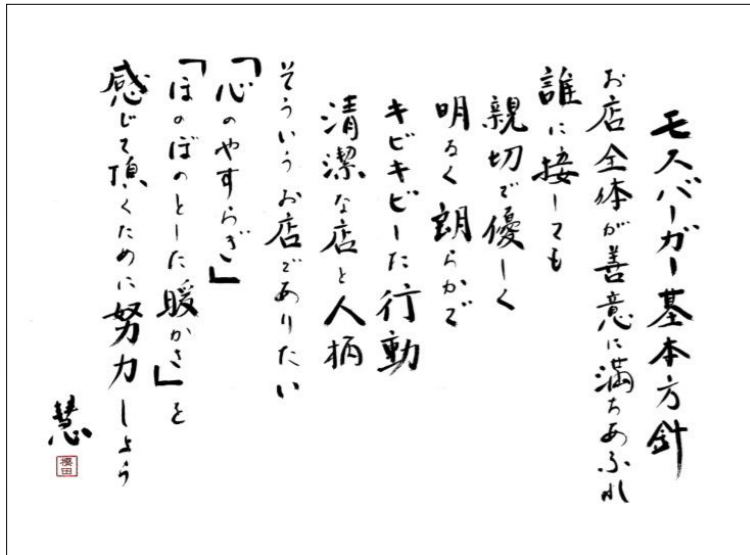 モスバーガー基本方針
お店全体が善意に満ちあふれ
誰に接しても
親切で優しく
明るく朗らかで
キビキビした行動
清潔な店と人柄
そういうお店でありたい
「心のやすらぎ」
「ほのぼのとした暖かさ」を
感じて頂くために努力しよう
慧
櫻田